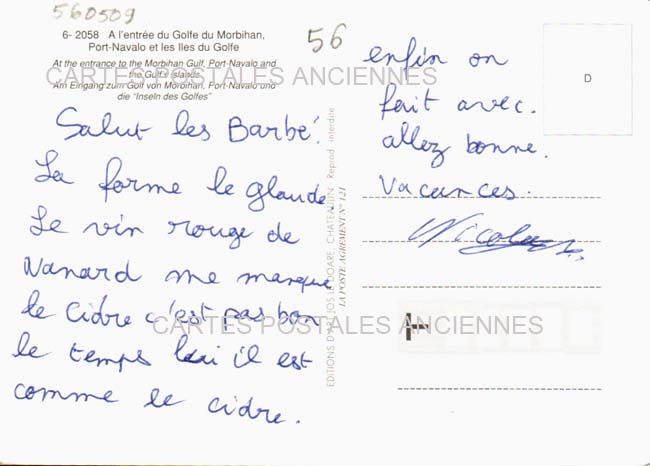 560509
6- 2058 A l'entrée du Golfe du Morbihan,
Port-Navalo et les Iles du Golfe
At the entrance to the Morbihan Gulf, Port-Navalo and
the Gulf's islands
Am Eingang zum Golf von Morbihan, Port-Navalo und
die "Inseln des Golfes"
CARTES POSTALES ANCIENNES
56
D
Salut les Barbé!
La forme le glaude
Le vin rouge de
Nanard me manque
le cidre c'est pas bon
le temps lui il est
comme le cidre.
EDITIONS D'ART JOS LE DOARE, CHATEAULIN Reprod. interdite
LA POSTE AGREMENT N° 121
enfin on
fait avec.
allez bonne.
Vacances.
Nicolas
CARTES POSTALES ANCIENNES